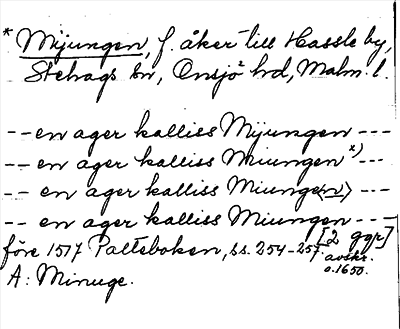 * Mijungen, f. åker till Hassle by,
Stehags sn, Onsjö hd, Malm. l.
-- en ager kalliss Mijungen ---
-- en ager kalliss Miungen *) ---
-- en ager kalliss Miunge<n> ---
-- en ager kalliss Miungen --- [2 ggr]
före 1517 Palteboken, ss. 254-257. avskr. o. 1650.
A: Minuge.